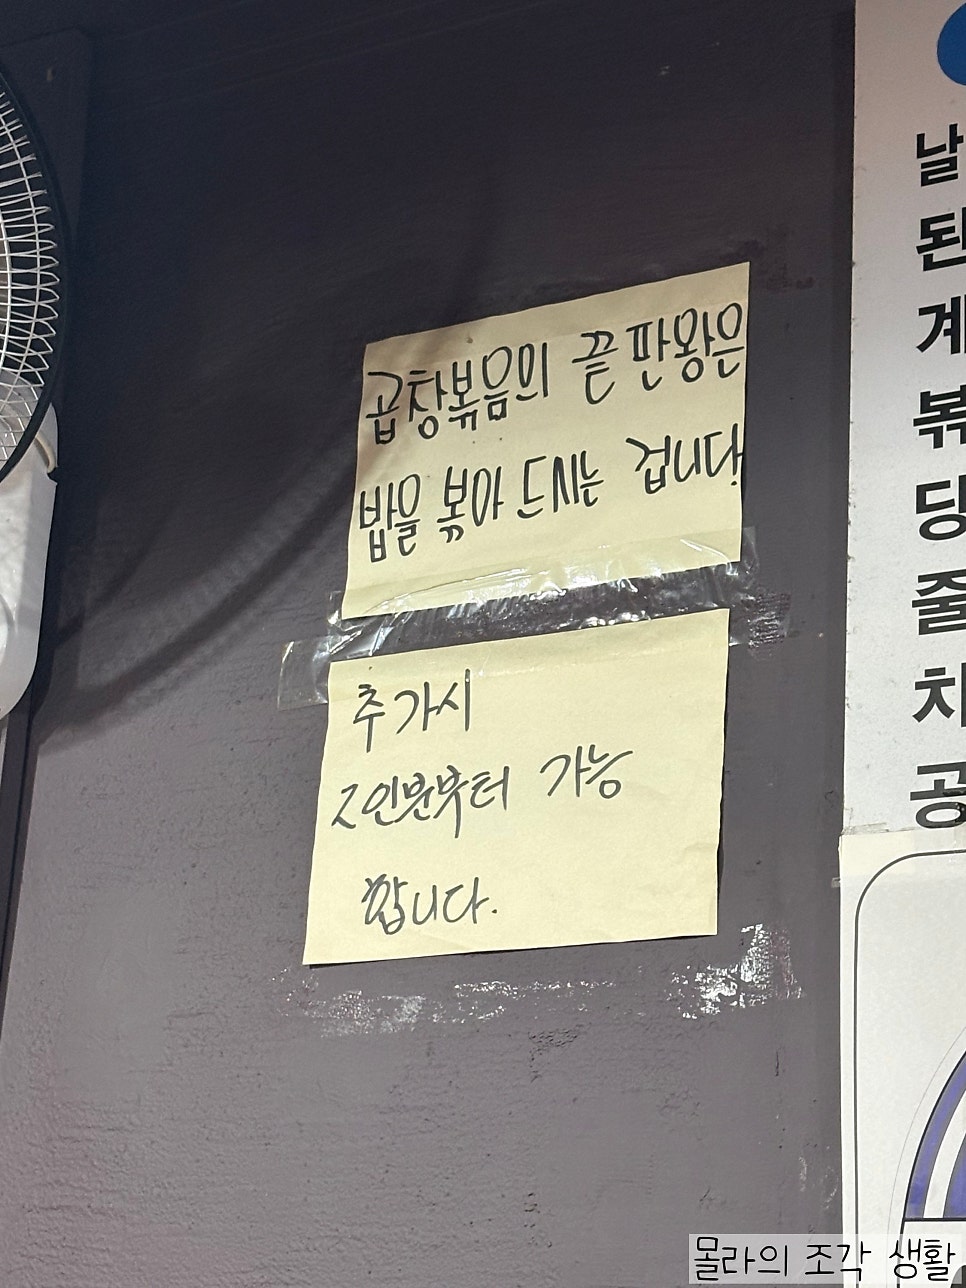 곱창볶음의 끝판왕은
밥을 볶아 드시는 겁니다.
추가시
2인분부터 가능
합니다.
날
된
계
볶
당
줄
차
공
몰라의 조각 생활